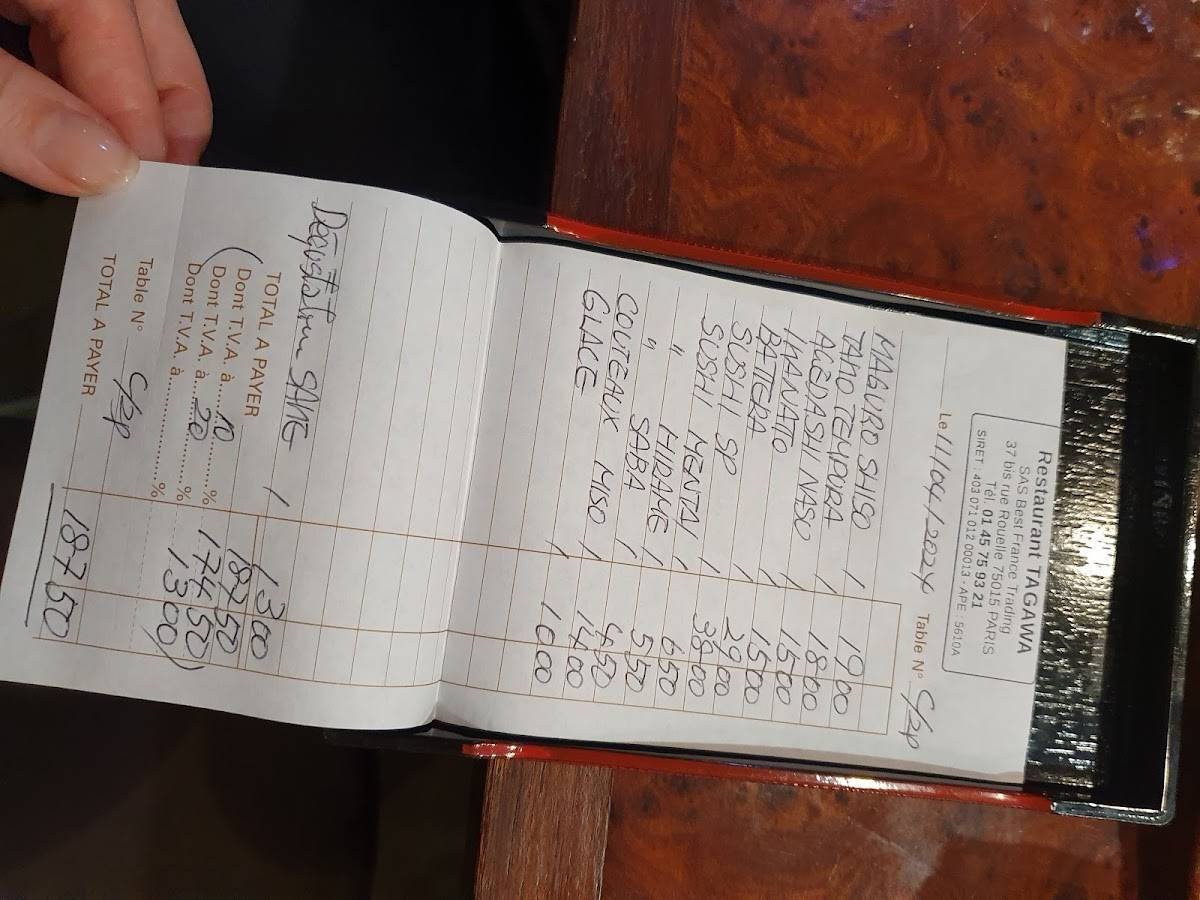 Restaurant TAGAWA
SAS Best France Trading
37 bis rue Rouelle 75015 PARIS
Tél. 01 45 75 93 21
SIRET : 403 071 012 00013 - APE : 5610A
Le 11/04/2024 Table N° C/2p
MAGURO SHISO 1 19 00
TAKO TEMPURA 1 18 00
AGEDASHI NASO 1 15 00
IKANATO 1 15 00
BATTERA 1 29 00
SUSHI SP 1 38 00
SUSHI MENTAI 1 6 50
" HIRAME 1 5 50
" SABA 1 4 50
COUTEAUX MISO 1 14 00
GLACE 1 10 00
Dégustation SAKE 1 13 00
TOTAL A PAYER 187 50
( Dont T.V.A. à 10 % 174 50
Dont T.V.A. à 20 % 13 00 )
Dont T.V.A. à %
Table N° C/2p
TOTAL A PAYER 187 50